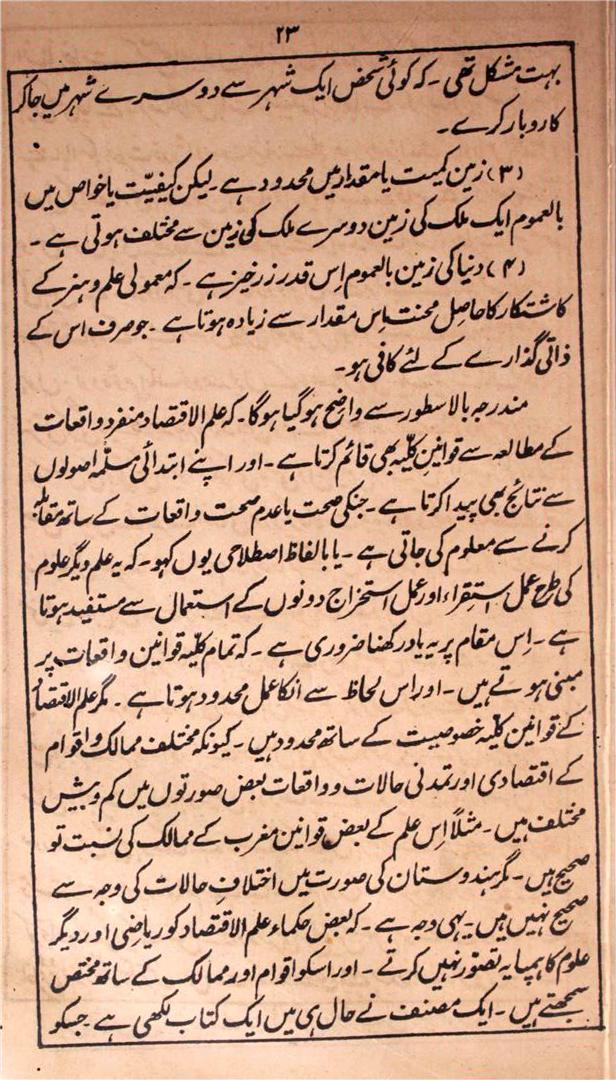 ۲۳
بہت مشکل تھی ۔ کہ کوئی شخص ایک شہر سے دوسرے شہر میں جاکر
کاروبار کرے ۔
(۳) زمین کمیت یا مقدار میں محدود ہے ۔ لیکن کیفیّت یا خواص میں
بالعموم ایک ملک کی زمین دوسرے ملک کی زمین سے مختلف ہوتی ہے ۔
(۴) دنیا کی زمین بالعموم اِس قدر زرخیز ہے ۔ کہ معمولی علم و ہنر کے
کاشتکار کا حاصل محنت اِس مقدار سے زیادہ ہوتا ہے ۔ جو صرف اس کے
ذاتی گذارے کے لئے کافی ہو ۔
مندرجہ بالا سطور سے واضح ہو گیا ہوگا ۔ کہ علم الاقتصاد منفرد واقعات
کے مطالعہ سے قوانینِ کلّیہ بھی قائم کرتا ہے ۔ اور اپنے ابتدائی مسلّمہ اصولوں
سے نتائج بھی پیدا کرتا ہے ۔ جنکی صحت یا عدم صحت واقعات کے ساتھ مقابلہ
کرنے سے معلوم کی جاتی ہے ۔ یا بالفاظ اصطلاحی یوں کہو ۔ کہ یہ علم دیگر علوم
کی طرح عمل استقراء اور عمل استخراج دونوں کے استعمال سے مستفید ہوتا
ہے ۔ اِس مقام پر یہ یاد رکھنا ضروری ہے ۔ کہ تمام کلّیہ قوانین واقعات پر
مبنی ہوتے ہیں ۔ اور اس لحاظ سے انکا عمل محدود ہوتا ہے ۔ مگر علم الاقتصاد
کے قوانین کلّیہ خصوصیت کے ساتھ محدود ہیں ۔ کیونکہ مختلف ممالک و اقوام
کے اقتصادی اور تمدنی حالات و واقعات بعض صورتوں میں کم و بیش
مختلف ہیں ۔ مثلاً اِس علم کے بعض قوانین مغرب کے ممالک کی نسبت تو
صحیح ہیں ۔ مگر ہندوستان کی صورت میں اختلافِ حالات کی وجہ سے
صحیح نہیں ہیں ۔ یہی وجہ ہے ۔ کہ بعض حکماء علم الاقتصاد کو ریاضی اور دیگر
علوم کا ہمپایہ تصوّر نہیں کرتے ۔ اور اسکو اقوام اور ممالک کے ساتھ مختص
سمجھتے ہیں ۔ ایک مصنف نے حال ہی میں ایک کتاب لکھی ہے ۔ جسکو